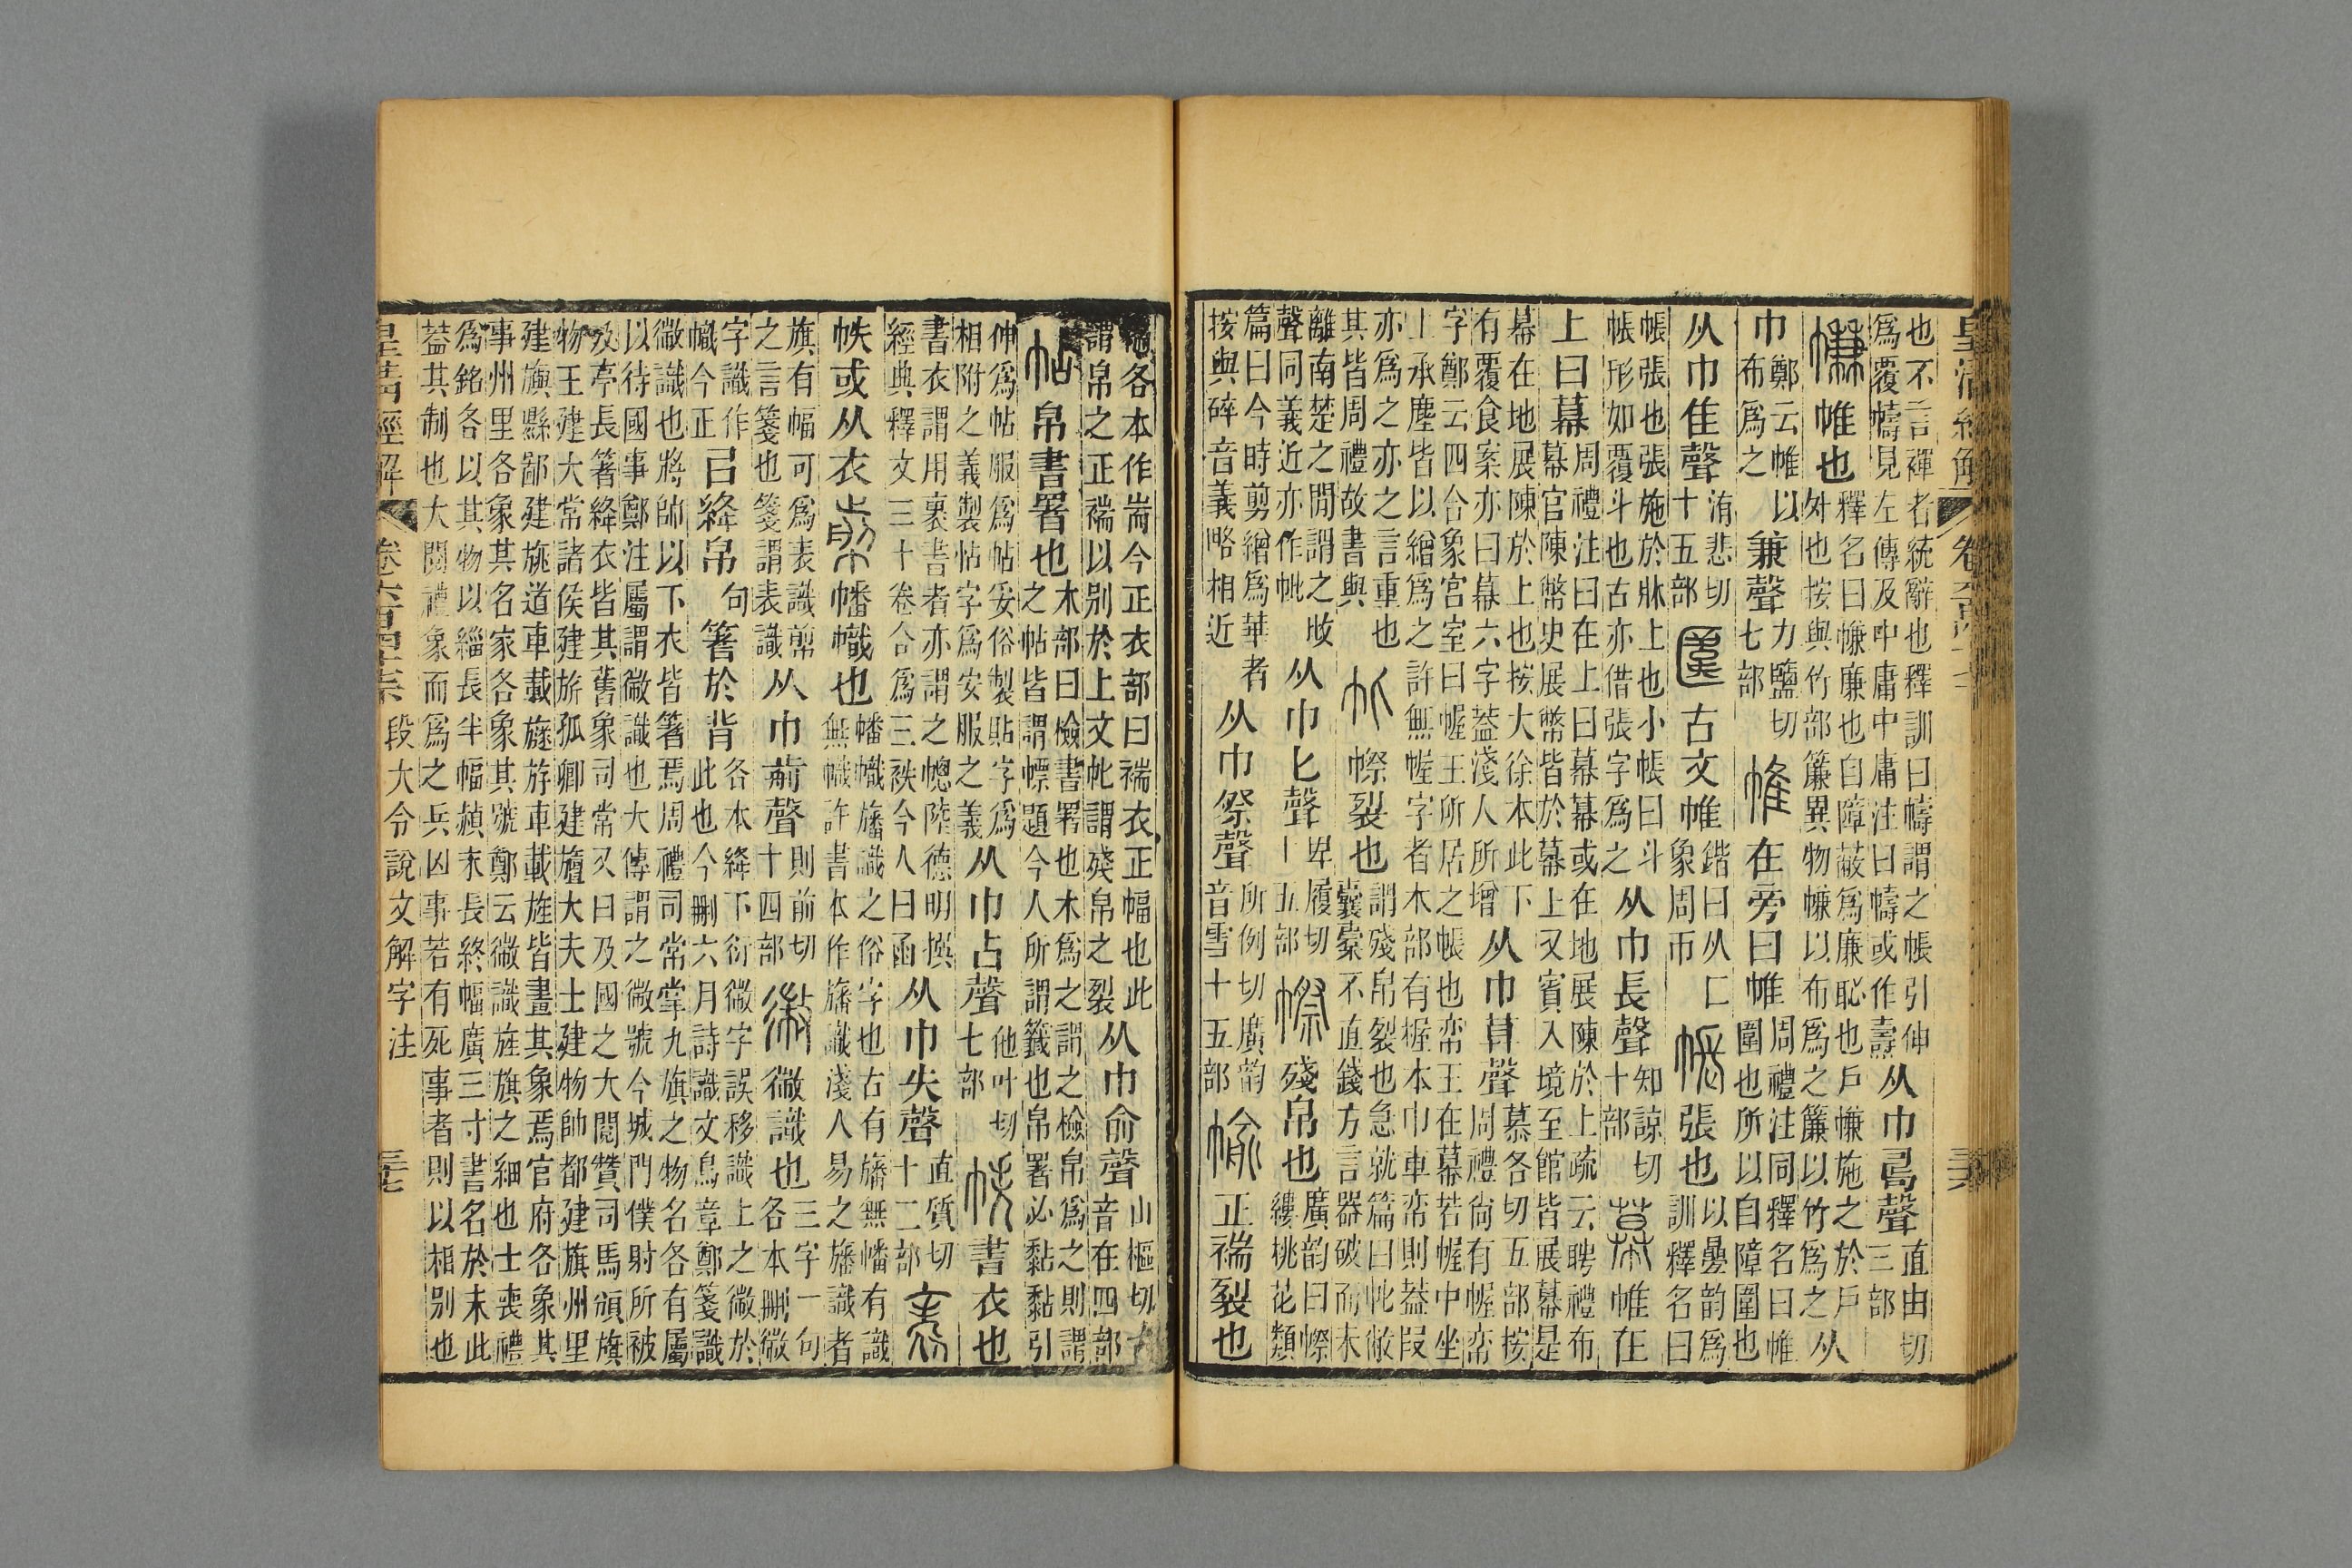 皇清經解 卷六百四十七 三十六
也不言襌者統辭也釋訓曰幬謂之帳引伸爲覆幬見左傳及中庸中庸注曰幬或作燾从巾𠷎聲直由切三部
㡘帷也釋名曰㡘廉也自障蔽爲廉恥也戶㡘施之於戶外也按與竹部簾異物㡘以布爲之簾以竹爲之从
巾鄭云帷以布爲之兼聲力鹽切七部帷在旁曰帷周禮注同釋名曰帷圍也所以自障圍也
从巾隹聲洧悲切十五部古文帷鍇曰从匚象周帀帳張也以曡韵爲訓釋名曰
帳張也張施於牀上也小帳曰斗帳形如覆斗也古亦借張字爲之从巾長聲知諒切十部幕帷在
上曰幕周禮注曰在上曰幕幕或在地展陳於上疏云聘禮布幕官陳幣史展幣皆於幕上又賓入境至館皆展幕是
幕在地展陳於上也按大徐本此下有覆食案亦曰幕六字葢淺人所增从巾莫聲慕各切五部按周禮尙有幄帟
字鄭云四合象宮室曰幄王所居之帳也帟王在幕若幄中坐上承塵皆以繒爲之許無幄字者木部有楃本巾車帟則葢叚
亦爲之亦之言重也其皆周禮故書與㠲㡜裂也謂殘帛裂也急就篇曰㠲敝囊橐不直錢方言器破而未
離南楚之閒謂之聲同義近亦作㠲从巾匕聲卑履切十五部㡜殘帛也廣韵曰㡜縷桃花類
篇曰今時剪繒爲華者按與碎音義略相近从巾祭聲所例切廣韵音雪十五部㡏正褍裂也
褍各本作耑今正衣部曰褍衣正幅也此謂帛之正褍以别於上文㠲謂殘帛之裂从巾俞聲山樞切古音在四部
帖帛書署也木部曰檢書署也木爲之謂之檢帛爲之則謂之帖皆謂幖題今人所謂籤也帛署必黏黏引
伸爲帖服爲帖妥俗製貼字爲相附之義製帖字爲安服之義从巾占聲他叶切七部帙書衣也
書衣謂用裹書者亦謂之幒陸德明撰經典釋文三十卷合爲三袟今人曰函从巾失聲直質切十二部袠
帙或从衣㡐幡幟也幡幟旛識之俗字也古有旛無幡有識無幟許書本作旛識淺人易之旛識者
旗有幅可爲表識㡐之言箋也箋謂表識从巾前聲則前切十四部微識也三字一句各本刪微
字識作幟今正㠯絳帛句箸於背各本絳下衍微字誤移識上之微於此也今刪六月詩識文鳥章鄭箋識
微識也將帥以下衣皆箸焉周禮司常掌九旗之物名各有屬以待國事鄭注屬謂微識也大傳謂之微號今城門僕射所被
及亭長箸絳衣皆其舊象司常又曰及國之大閱贊司馬頒旗物王建大常諸侯建旂孤卿建旜大夫士建物帥都建旗州里
建旟縣鄙建旐道車載旞斿車載旌皆畫其象焉官府各象其事州里各象其名家各象其號鄭云微識旌旗之細也士喪禮
爲銘各以其物以緇長半幅赬末長終幅廣三寸書名於末此葢其制也大閱禮象而爲之兵凶事若有死事者則以相别也
皇清經解 卷六百四十七 段大令說文解字注 三十七